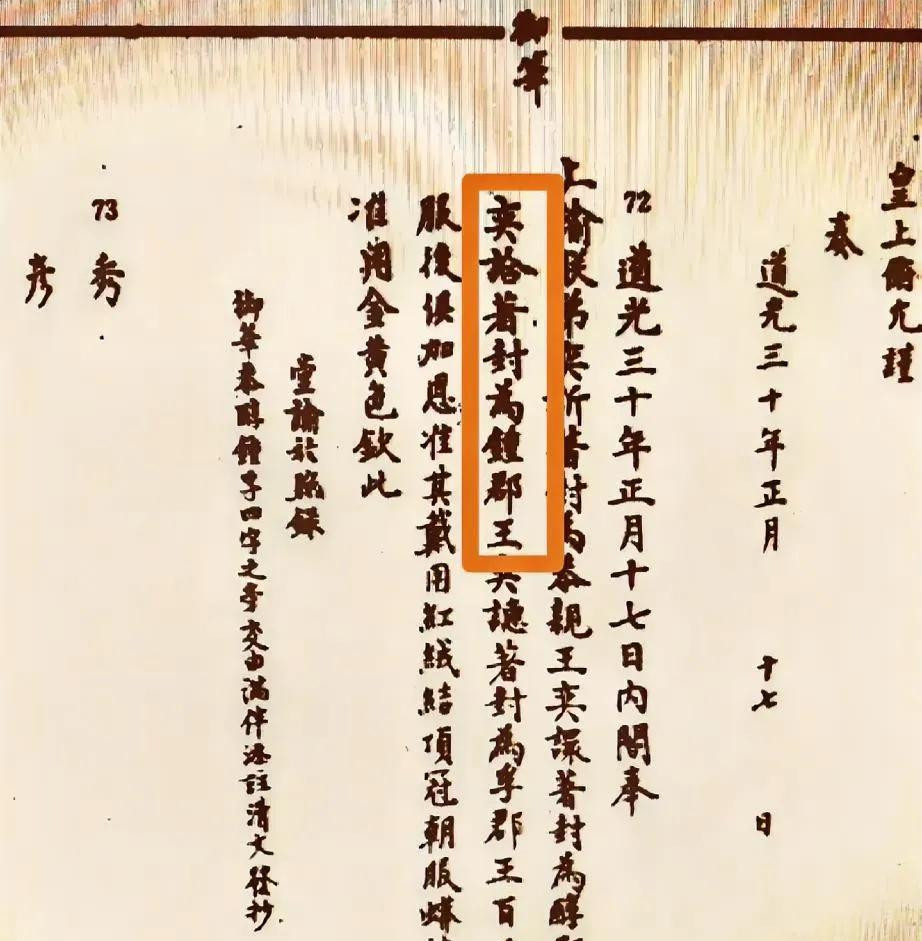 御筆
皇上俞允謹
奏
道光三十年正月 十七 日
72 道光三十年正月十七日內閣奉
上諭朕弟奕訢著封為恭親王奕譞著封為醇
奕詥著封為鍾郡王奕譓著封為孚郡王百
服後俱加恩准其戴用紅絨結頂冠朝服蟒
准用金黃色欽此
堂諭於照錄
御筆恭醇鍾孚四字之旁交由滿伴送註清文發抄
73 秀
彥